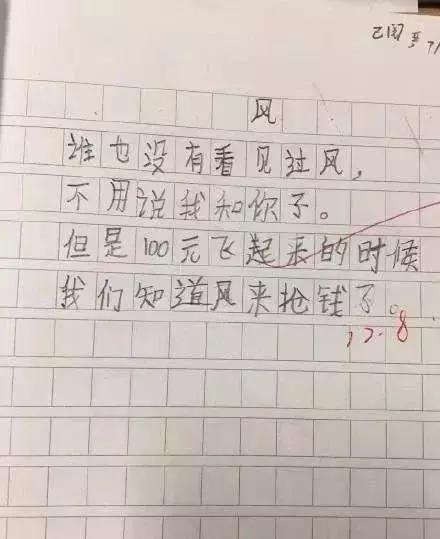 已阅
风
谁也没有看见过风,
不用说我和你了。
但是100元飞起来的时候
我们知道风来抢钱了。